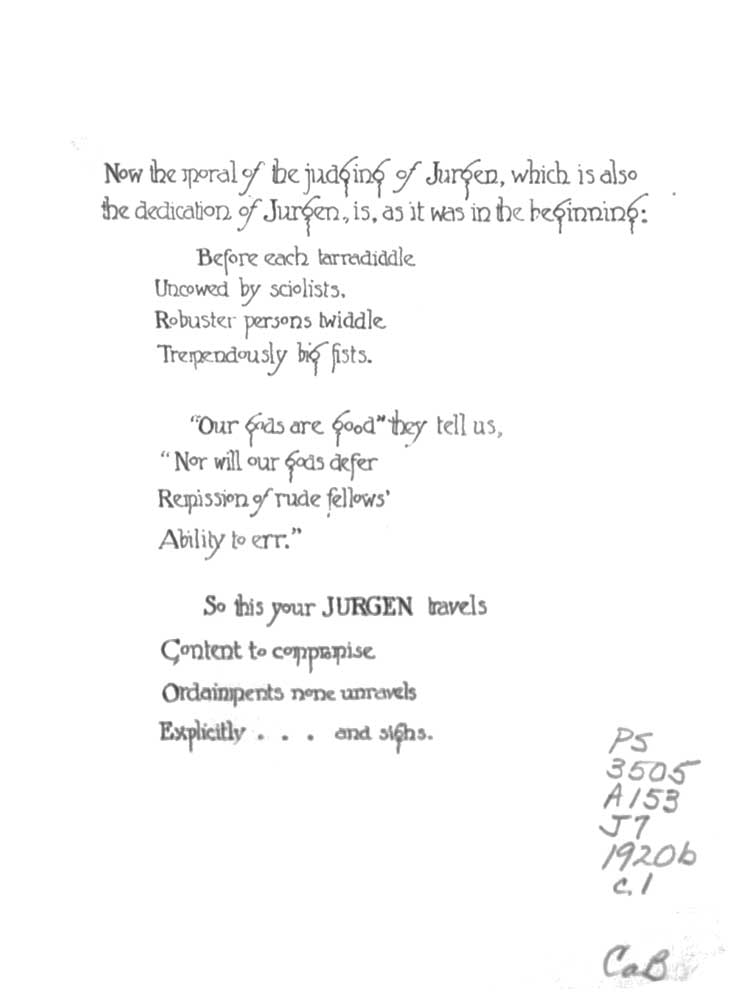 Now the moral of the judging of Jurgen, which is also
the dedication of Jurgen, is, as it was in the beginning:
Before each tarradiddle
Uncowed by sciolists,
Robuster persons twiddle
Tremendously big fists.
"Our gods are good" they tell us,
"Nor will our gods defer
Remission of rude fellows'
Ability to err."
So this your JURGEN travels
Content to compromise
Ordainments none unravels
Explicitly . . . and sighs.
PS
3505
A153
J7
1920b
c.1
CaB